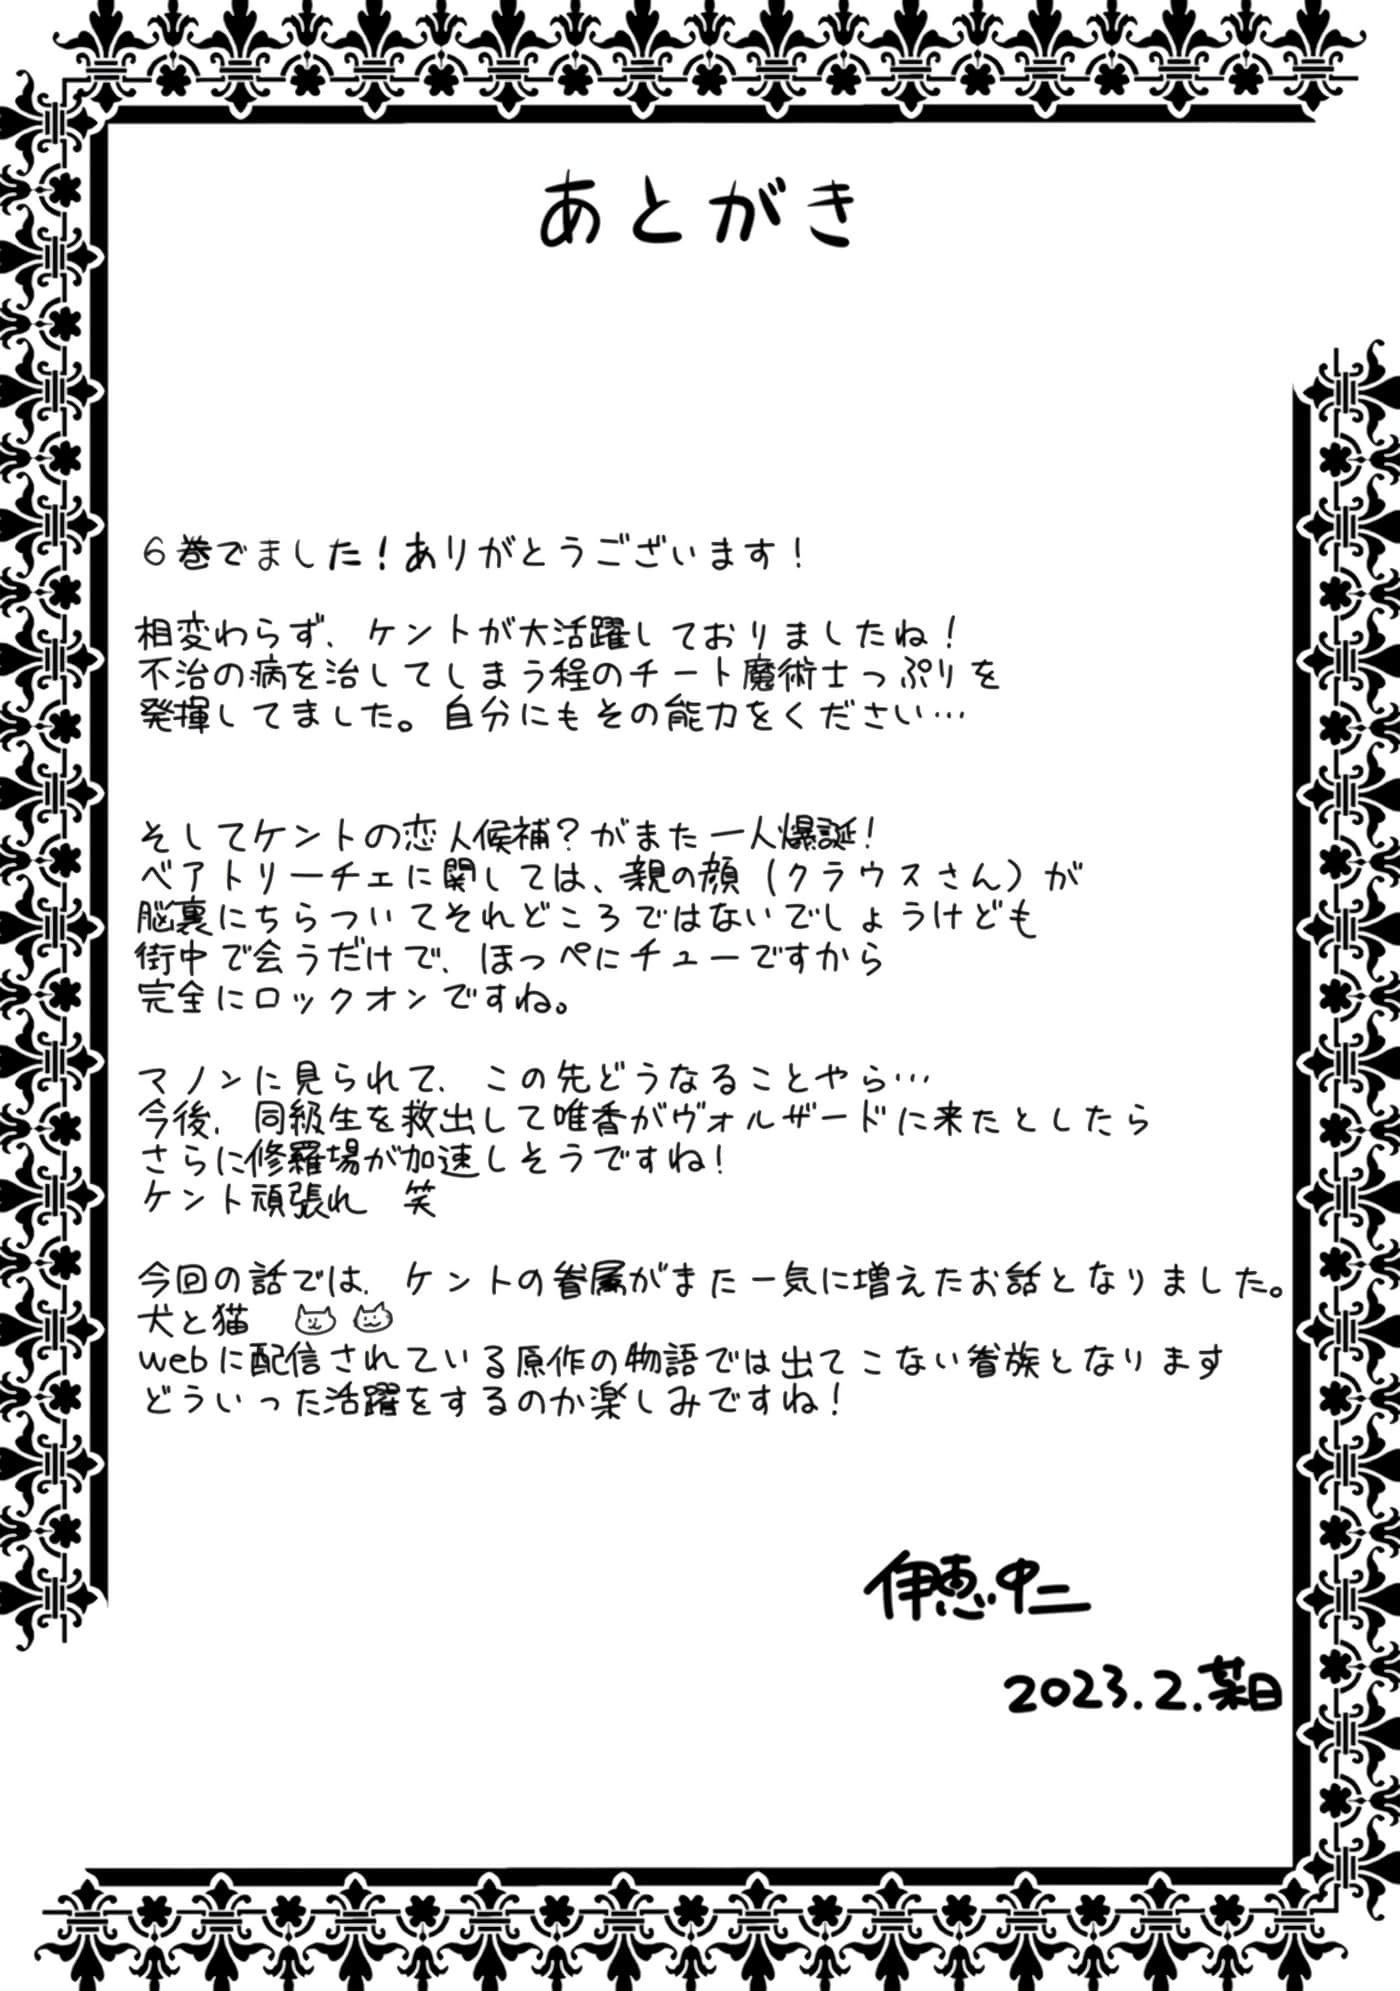 あとがき
6巻でました！ありがとうございます！
相変わらず、ケントが大活躍しておりましたね！
不治の病を治してしまう程のチート魔術士っぷりを
発揮してました。自分にもその能力をください…
そしてケントの恋人候補？がまた一人爆誕！
ベアトリーチェに関しては、親の顔（クラウスさん）が
脳裏にちらついてそれどころではないでしょうけども
街中で会うだけで、ほっぺにチューですから
完全にロックオンですね。
マノンに見られて、この先どうなることやら…
今後、同級生を救出して唯香がヴォルザードに来たとしたら
さらに修羅場が加速しそうですね！
ケント頑張れ　笑
今回の話では、ケントの眷属がまた一気に増えたお話となりました。
犬と猫
webに配信されている原作の物語では出てこない眷族となります
どういった活躍をするのか楽しみですね！
伊恵中二
2023.2.某日